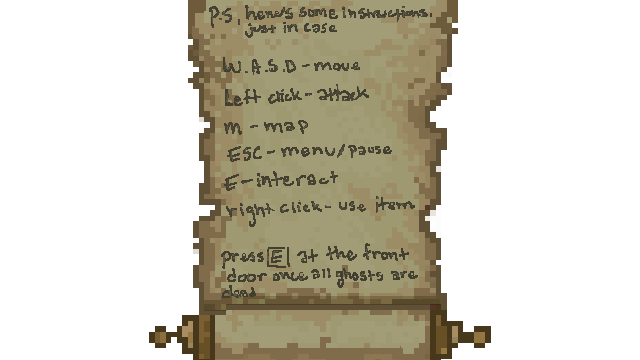 P.S, here's some instructions,
just in case
W.A.S.D - move
Left click - attack
m - map
ESC - menu/pause
E - interact
right click - use item
press E at the front
door once all ghosts are
dead